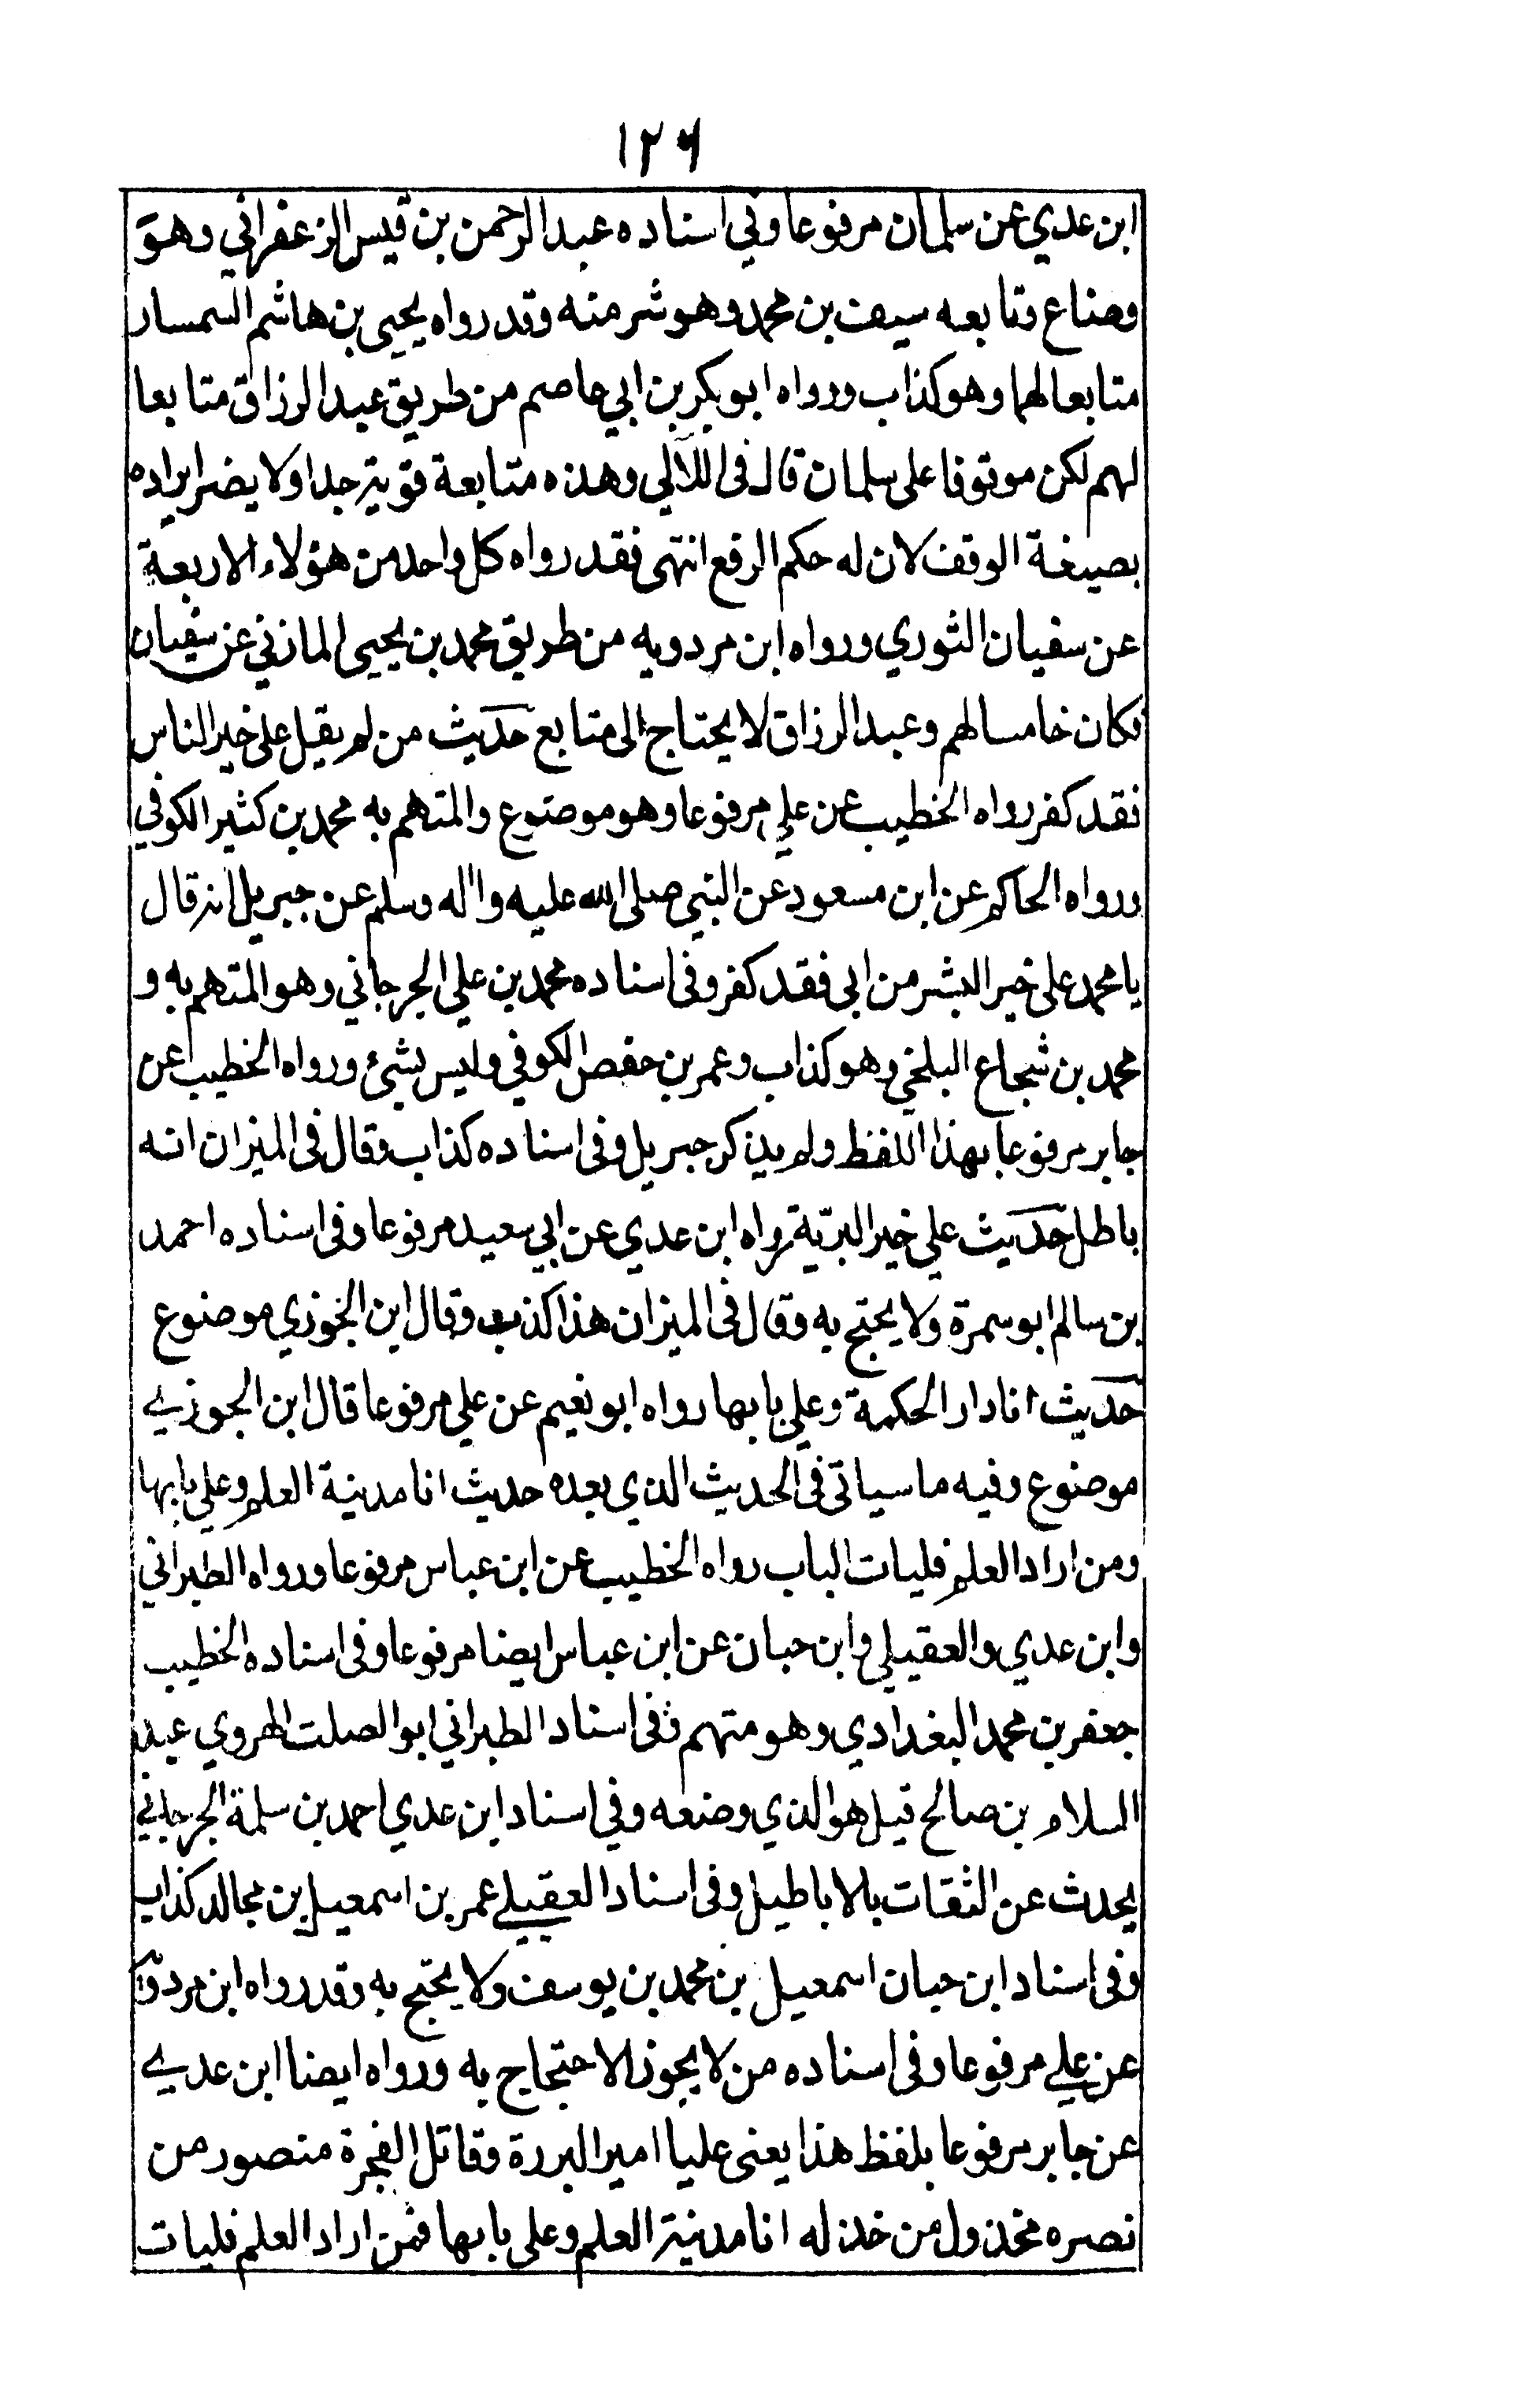 ١٢٦
ابن عدي عن سلمان مرفوعا وفي اسناده عبد الرحمن بن قيس الزعفراني وهو
وضاع وتابعه سيف بن محمد وهو شر منه وقد رواه يحيى بن هاشم السمسار
متابعا لهما وهو كذاب ورواه ابو بكر بن ابي عاصم من طريق عبد الرزاق متابعا
لهم لكن موقوفا على سلمان قال فى اللآلي وهذه متابعة قوية جدا ولا يضر ايراده
بصيغة الوقف لان له حكم الرفع انتهى فقد رواه كل واحد من هؤلاء الاربعة
عن سفيان الثوري ورواه ابن مردويه من طريق محمد بن يحيى المازني عن سفيان
فكان خامسا لهم وعبد الرزاق لا يحتاج الى متابع حديث من لم يقل علي خير الناس
فقد كفر رواه الخطيب عن علي مرفوعا وهو موضوع والمتهم به محمد بن كثير الكوفي
ورواه الحاكم عن ابن مسعود عن النبي صلى الله عليه واله وسلم عن جبريل انه قال
يا محمد علي خير البشر من ابى فقد كفر وفى اسناده محمد بن علي الجرجاني وهو المتهم به و
محمد بن شجاع البلخي وهو كذاب وعمر بن حفص الكوفي وليس بشئ ورواه الخطيب عن
جابر مرفوعا بهذا اللفظ ولم يذكر جبريل وفى اسناده كذاب وقال فى الميزان انه
باطل حديث علي خير البريّة رواه ابن عدي عن ابي سعيد مرفوعا وفى اسناده احمد
بن سالم ابو سمرة ولا يحتج به وقال فى الميزان هذا كذب وقال ابن الجوزي موضوع
حديث انا دار الحكمة وعلي بابها رواه ابو نعيم عن علي مرفوعا قال ابن الجوزي
موضوع وفيه ما سياتى فى الحديث الذي بعده حديث انا مدينة العلم وعلي بابها
ومن اراد العلم فليات الباب رواه الخطيب عن ابن عباس مرفوعا ورواه الطبراني
وابن عدي والعقيلي وابن حبان عن ابن عباس ايضا مرفوعا وفى اسناده الخطيب
جعفر بن محمد البغدادي وهو متهم وفى اسناد الطبراني ابو الصلت الهروي عبد
السلام بن صالح قيل هو الذي وضعه وفي اسناد ابن عدي احمد بن سلمة الجرجاني
يحدث عن الثقات بالاباطيل وفى اسناد العقيلي عمر بن اسمعيل بن مجالد كذاب
وفى اسناد ابن حبان اسمعيل بن محمد بن يوسف ولا يحتج به وقد رواه ابن مردويه
عن علي مرفوعا وفى اسناده من لا يجوز الاحتجاج به ورواه ايضا ابن عدي
عن جابر مرفوعا بلفظ هذا يعنى عليا امير البررة وقاتل الفجرة منصور من
نصره مخذول من خذله انا مدينة العلم وعلي بابها فمن اراد العلم فليات